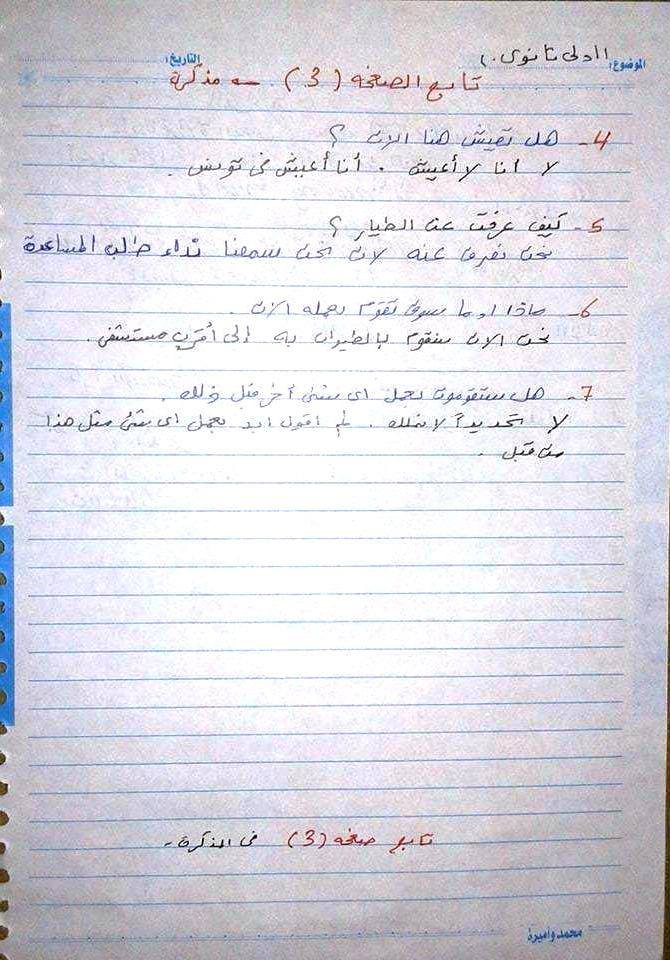 الموضوع: (اولى ثانوى)
التاريخ:
تابع الصفحه (3) - مذكرة
4- هل تعيش هنا الان ؟
لا انا لا أعيش . أنا أعيش فى تونس .
5- كيف عرفت عن الطيار ؟
نحن نعرف عنه لان نحن سمعنا نداء طالب المساعدة
6- ماذا سوف تقوم بعمله الان .
نحن الان سنقوم بالطيران به إلى أقرب مستشفى .
7- هل ستقومون بعمل اى شئ أخر مثل ذلك .
لا تحديداً لا . لم اقول ابد بعمل اى شئ مثل هذا
من قبل .
تابع صفحه (3) فى المذكرة -
محمد واميرة